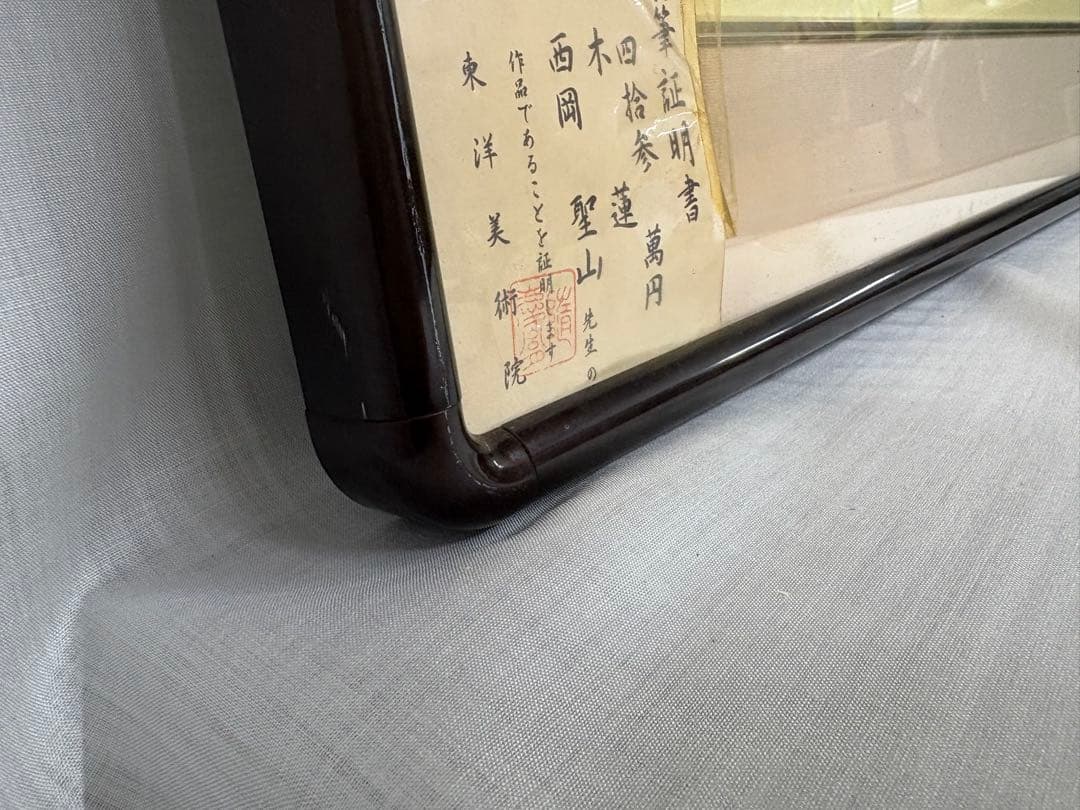 筆証明書
四拾参萬円
木蓮
西岡聖山先生の
作品であることを証明します
東洋美術院